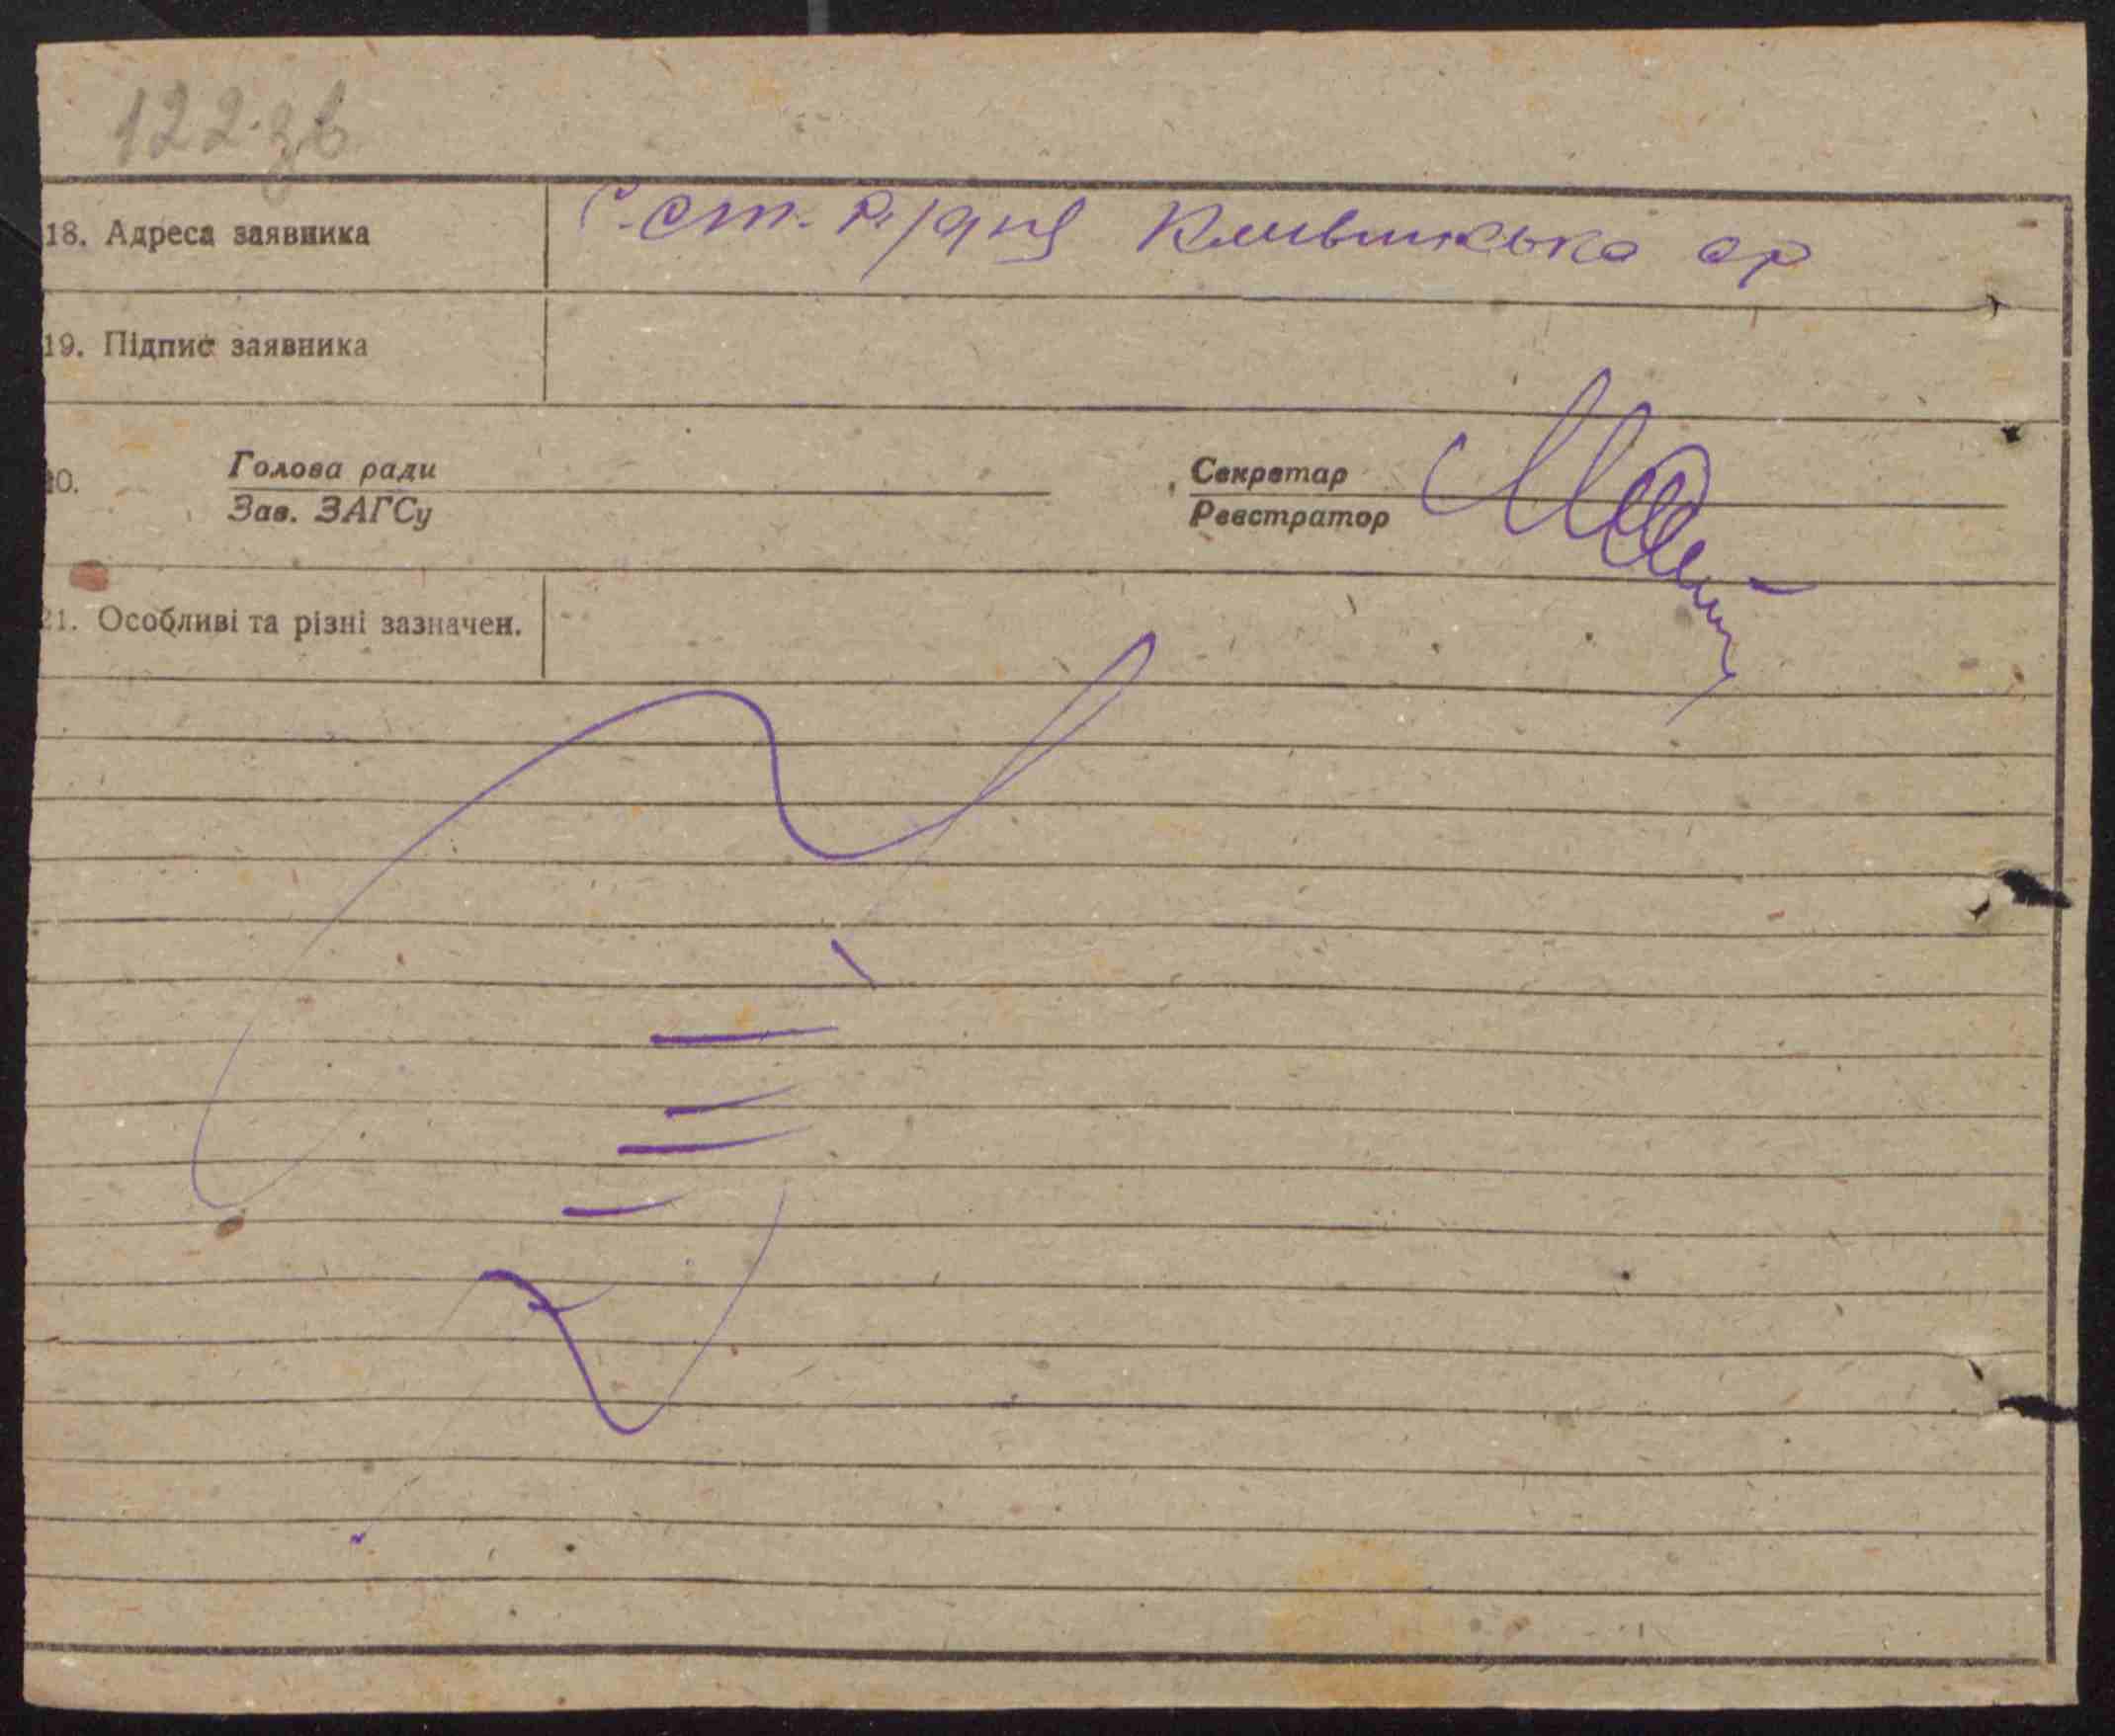 122 зв
18. Адреса заявника С. ст.
19. Підпис заявника
Голова ради Секретар
Зав. ЗАГСу Реєстратор
21. Особливі та різні зазначен.